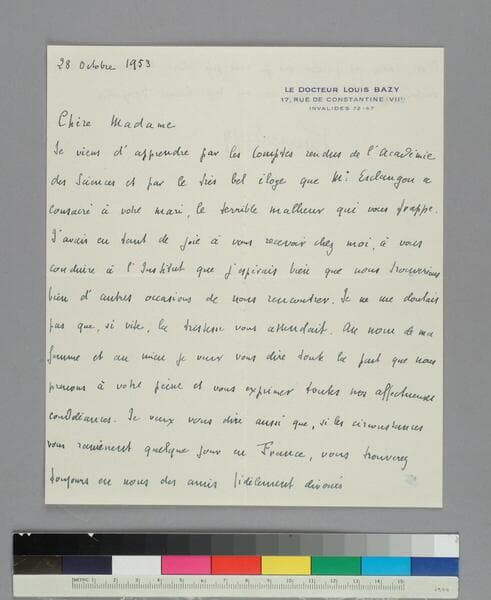 28 Octobre 1953
LE DOCTEUR LOUIS BAZY
17, RUE DE CONSTANTINE (VIIe)
INVALIDES 72-47
Chère Madame
Je viens d'apprendre par les Comptes rendus de l'Académie
des Sciences et par le très bel éloge que Mr Esclangon a
consacré à votre mari, le terrible malheur qui vous frappe.
J'avais eu tant de joie à vous recevoir chez moi, à vous
conduire à l'Institut que j'espérais bien que nous trouverions
bien d'autres occasions de nous rencontrer. Je ne me doutais
pas que, si vite, la tristesse vous attendait. Au nom de ma
femme et au mien je veux vous dire toute la part que nous
prenons à votre peine et vous exprimer toutes nos affectueuses
condoléances. Je veux vous dire aussi que, si les circonstances
vous ramènent quelque jour en France, vous trouverez
toujours en nous des amis fidèlement dévoués
METRIC 1 2 3 4 5 6 7 8 9 10 11 12 13 14 15